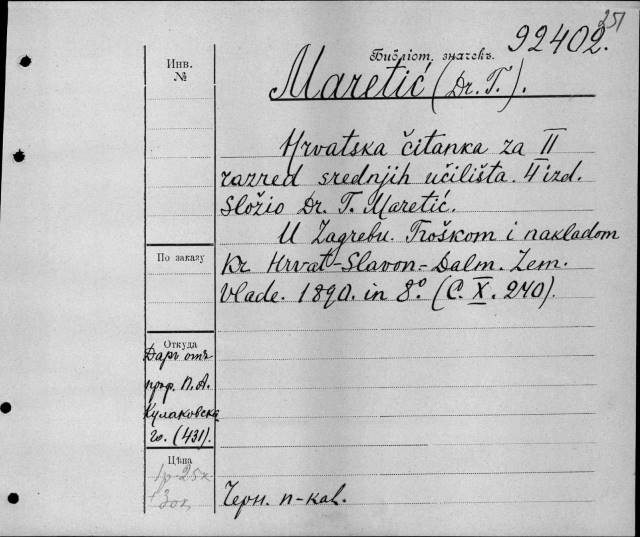 251
92402.
Библіот. значекъ.
Инв.
№
Maretić (Dr. T.).
Hrvatska čitanka za II
razred srednjih učilišta. 4 izd.
Složio Dr. T. Maretić.
U Zagrebu. Troškom i nakladom
По заказу
Kr Hrvat-Slavon-Dalm. Zem.
Vlade. 1890. in 8° (C. X. 240).
Откуда
Даръ отъ
проф. П. А.
Кулаковска
го. (431).
Цѣна
1р 25к
Черн. п-кал.